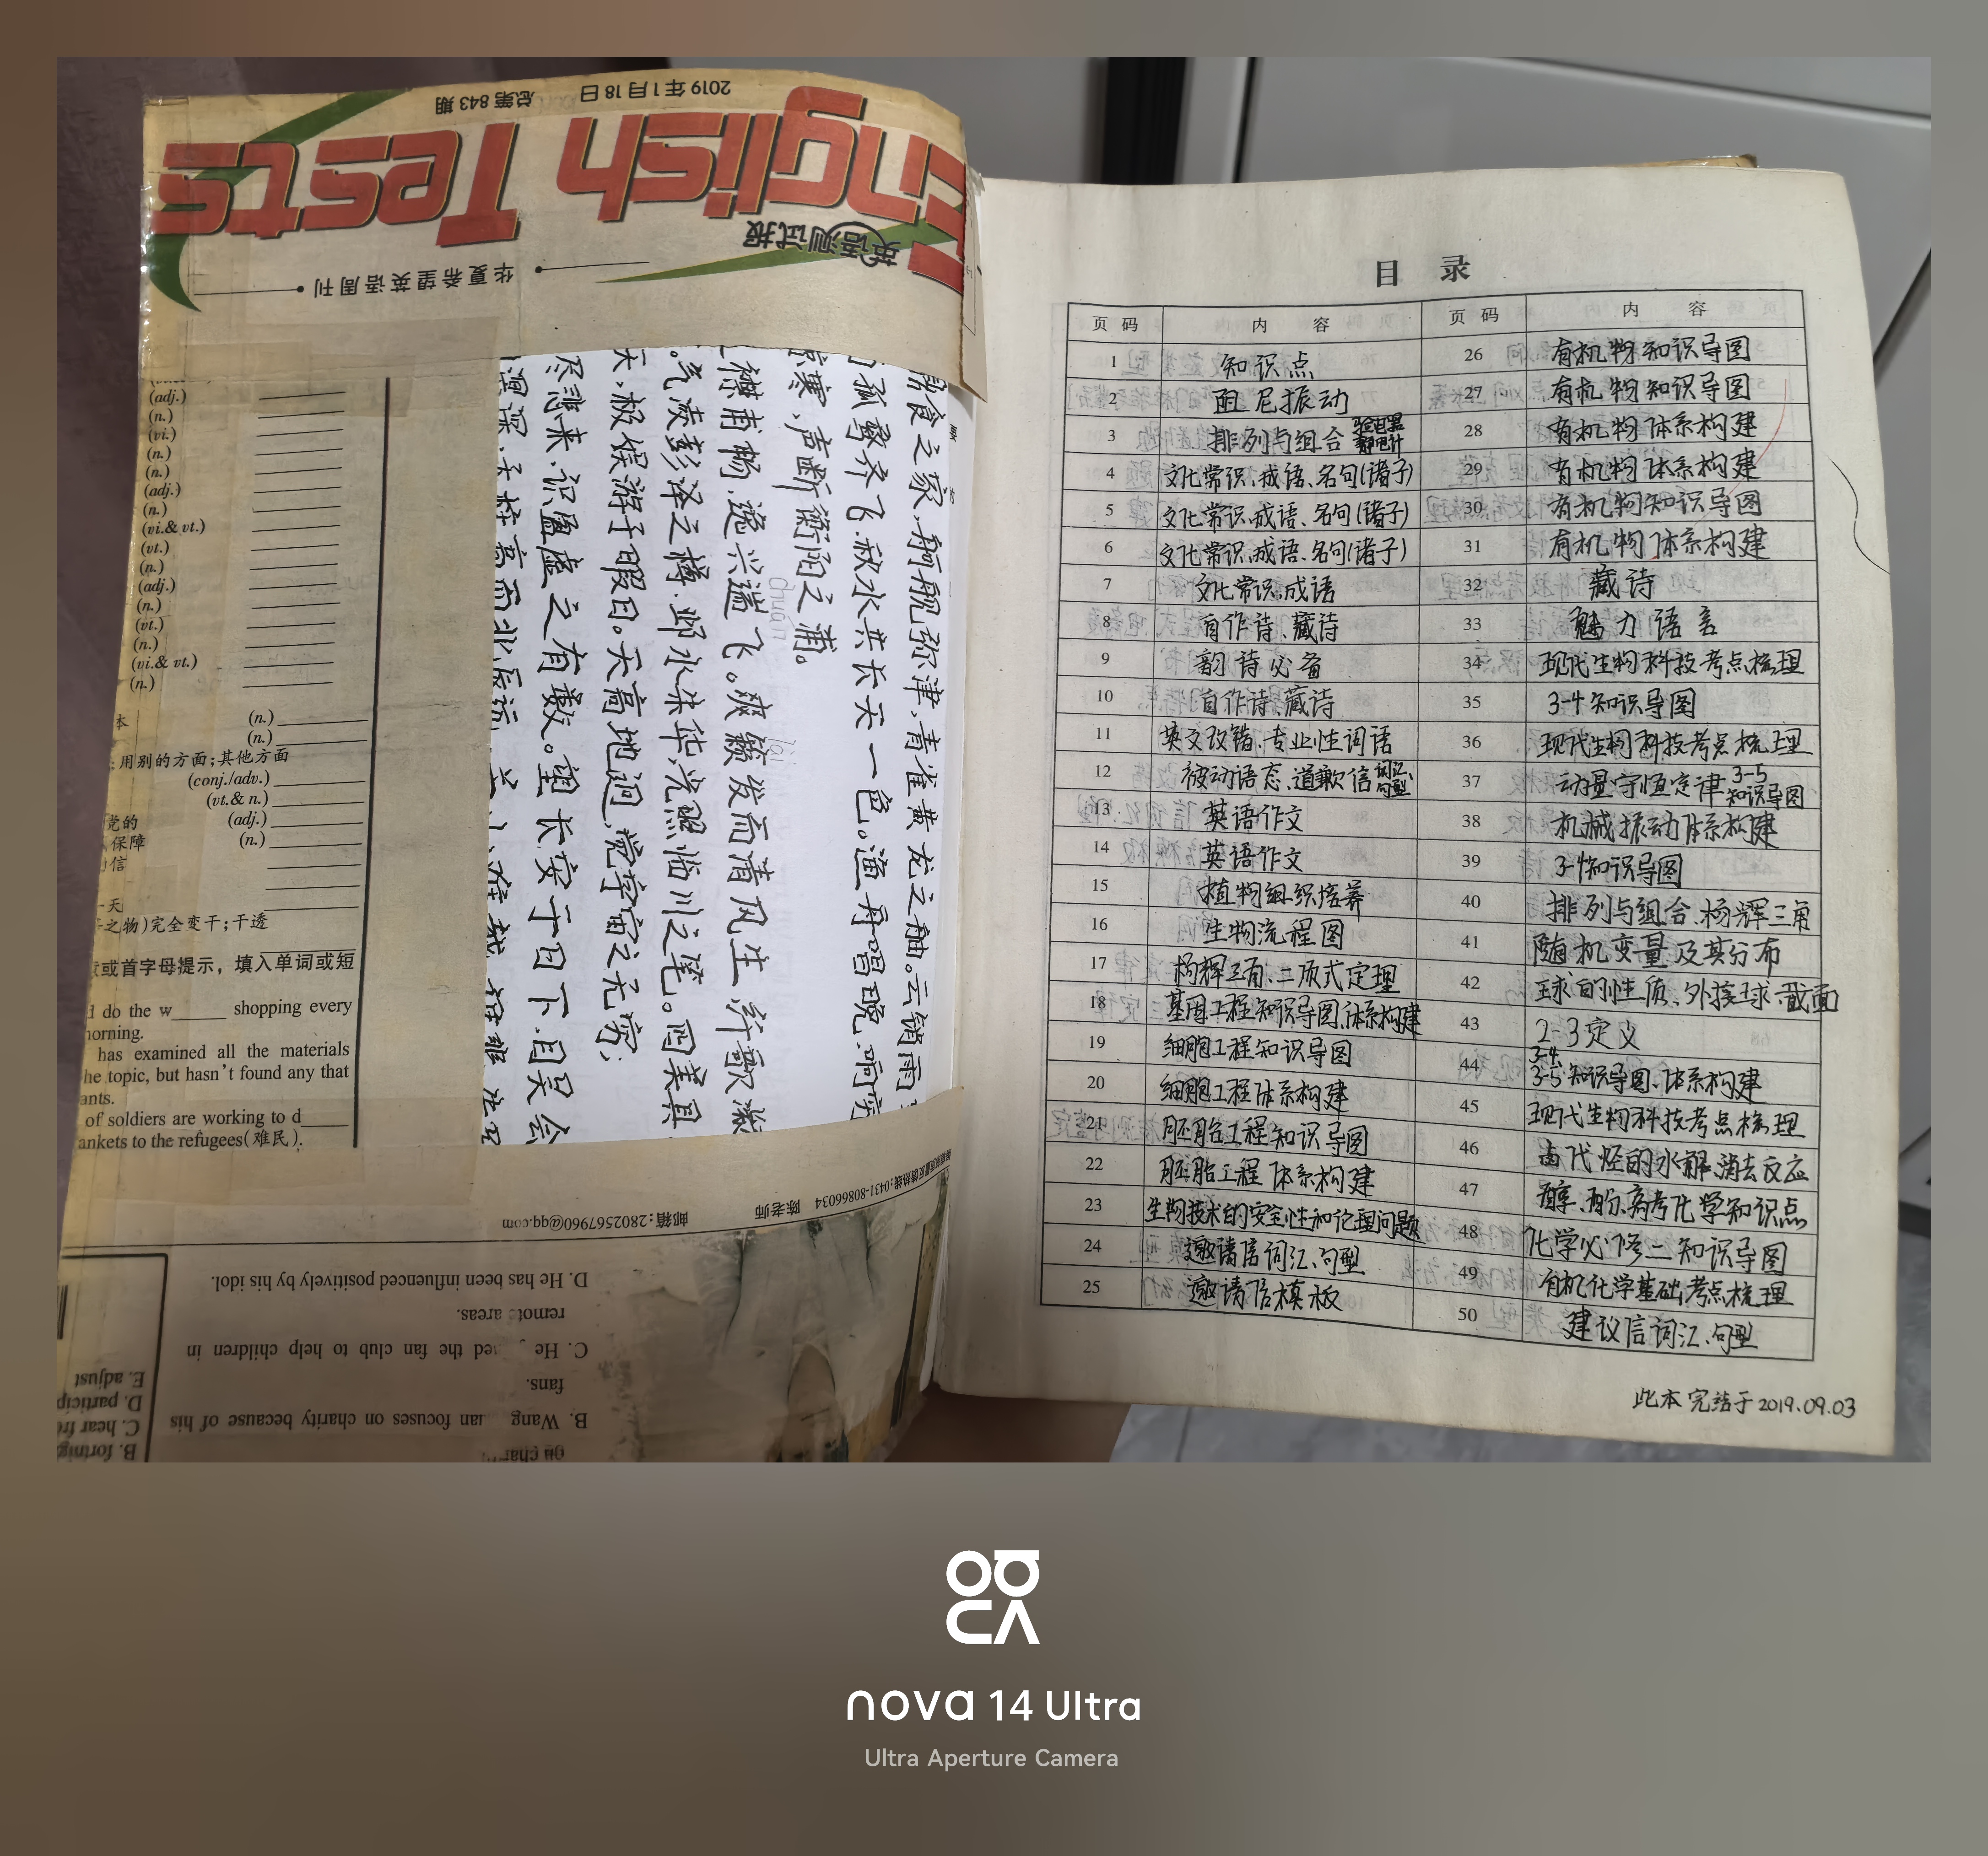 2019年1月18日 总第843期
English Tests
英语测试报
华夏希望英语周刊
(adj.)
(n.)
(vi.)
(n.)
(n.)
(adj.)
(n.)
(vi.& vt.)
(vt.)
(n.)
(adj.)
(n.)
(vi.)
(n.)
(vi.& vt.)
(n.)
本 (n.)
(n.)
用别的方面;其他方面
(conj./adv.)
(vt.& n.)
党的 (adj.)
保障 (n.)
信
一天
之物)完全变干;干透
或首字母提示，填入单词或短
do the w_____ shopping every
morning.
has examined all the materials
he topic, but hasn't found any that
ants.
of soldiers are working to d____
ankets to the refugees(难民).
食之家,舸舰弥津,青雀黄龙之舳。云销雨
孤鹜齐飞,秋水共长天一色。渔舟唱晚,响穷
寒,声断衡阳之浦。
襟甫畅,逸兴遄飞。爽籁发而清风生,纤歌凝
。气凌彭泽之樽,邺水朱华,光照临川之笔。四美具
天,极娱游于暇日。天高地迥,觉宇宙之无穷;
尽悲来,识盈虚之有数。望长安于日下,目吴会
溟深,天柱高而北辰远。
邮箱:2802567960@qq.com 陈老师
热线:0431-80866034
D. He has been influenced positively by his idol.
remote areas.
C. He ed the fan club to help children in
fans.
B. Wang uan focuses on charity because of his
E. adjust
D. particip
C. hear fr
目 录
页 码 内 容 页 码 内 容
1 知识点 26 有机物知识导图
2 阻尼振动 27 有机物知识导图
3 排列与组合 验电器 静电计 28 有机物体系构建
4 文化常识、成语、名句(诸子) 29 有机物体系构建
5 文化常识、成语、名句(诸子) 30 有机物知识导图
6 文化常识、成语、名句(诸子) 31 有机物体系构建
7 文化常识、成语 32 藏诗
8 自作诗、藏诗 33 魅力语言
9 韵诗必备 34 现代生物科技考点梳理
10 自作诗、藏诗 35 3-4知识导图
11 英文改错、专业性词语 36 现代生物科技考点梳理
12 被动语态、道歉信词汇、句型 37 动量守恒定律 3-5知识导图
13 英语作文 38 机械振动体系构建
14 英语作文 39 3-4知识导图
15 植物组织培养 40 排列与组合、杨辉三角
16 生物流程图 41 随机变量及其分布
17 杨辉三角、二项式定理 42 球的性质、外接球、截面
18 基因工程知识导图、体系构建 43 2-3定义
19 细胞工程知识导图 44 3-4、3-5知识导图、体系构建
20 细胞工程体系构建 45 现代生物科技考点梳理
21 胚胎工程知识导图 46 卤代烃的水解、消去反应
22 胚胎工程体系构建 47 醇、酚、高考化学知识点
23 生物技术的安全性和伦理问题 48 化学必修二知识导图
24 邀请信词汇、句型 49 有机化学基础考点梳理
25 邀请信模板 50 建议信词汇、句型
此本完结于2019.09.03
nova 14 Ultra
Ultra Aperture Camera